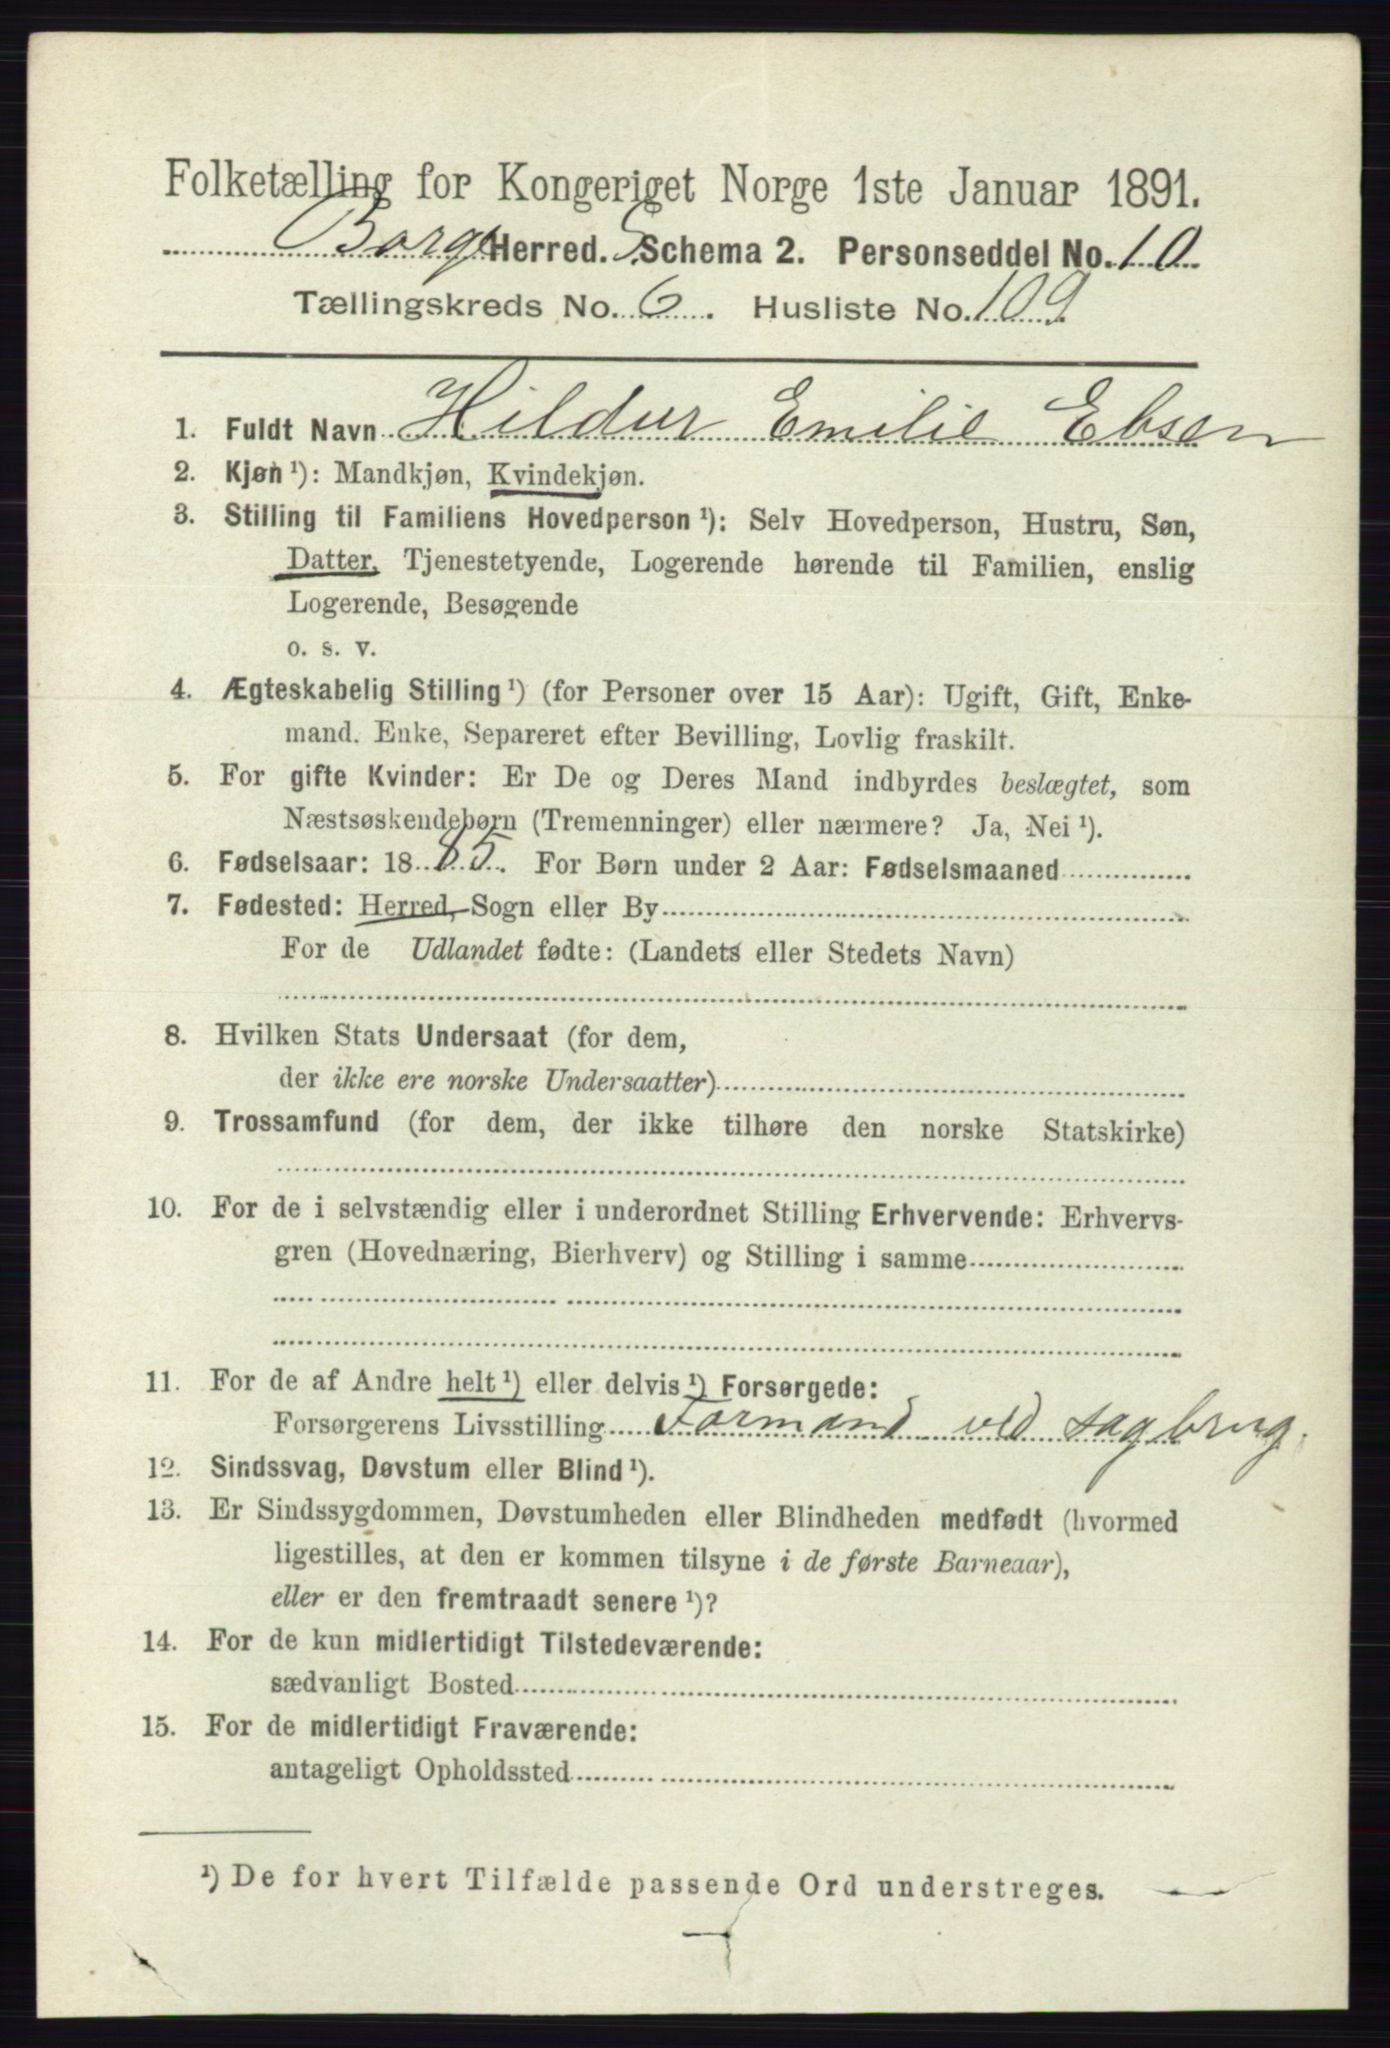 Folketælling for Kongeriget Norge 1ste Januar 1891.
Borge Herred. S Schema 2. Personseddel No. 10
Tællingskreds No. 6. Husliste No. 109
1. Fuldt Navn Hildur Emilie Ebsen
2. Kjøn ¹): Mandkjøn, Kvindekjøn.
3. Stilling til Familiens Hovedperson ¹): Selv Hovedperson, Hustru, Søn,
Datter, Tjenestetyende, Logerende hørende til Familien, enslig
Logerende, Besøgende
o. s. v.
4. Ægteskabelig Stilling ¹) (for Personer over 15 Aar): Ugift, Gift, Enke-
mand. Enke, Separeret efter Bevilling, Lovlig fraskilt.
5. For gifte Kvinder: Er De og Deres Mand indbyrdes beslægtet, som
Næstsøskendebørn (Tremenninger) eller nærmere? Ja, Nei ¹).
6. Fødselsaar: 1885. For Børn under 2 Aar: Fødselsmaaned
7. Fødested: Herred, Sogn eller By
For de Udlandet fødte: (Landets eller Stedets Navn)
8. Hvilken Stats Undersaat (for dem,
der ikke ere norske Undersaatter)
9. Trossamfund (for dem, der ikke tilhøre den norske Statskirke)
10. For de i selvstændig eller i underordnet Stilling Erhvervende: Erhvervs-
gren (Hovednæring, Bierhverv) og Stilling i samme
11. For de af Andre helt ¹) eller delvis ¹) Forsørgede:
Forsørgerens Livsstilling Formand ved sagbrug.
12. Sindssvag, Døvstum eller Blind ¹).
13. Er Sindssygdommen, Døvstumheden eller Blindheden medfødt (hvormed
ligestilles, at den er kommen tilsyne i de første Barneaar),
eller er den fremtraadt senere ¹)?
14. For de kun midlertidigt Tilstedeværende:
sædvanligt Bosted
15. For de midlertidigt Fraværende:
antageligt Opholdssted
¹) De for hvert Tilfælde passende Ord understreges.